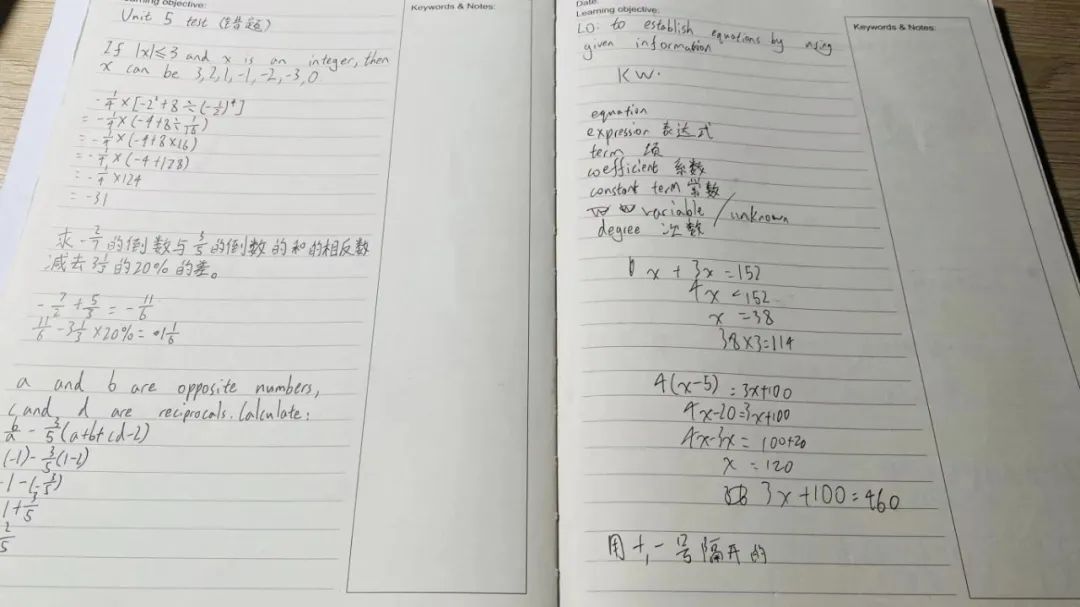 Learning objective:
Keywords & Notes:
Unit 5 test (错题)
If |x|≤3 and x is an integer, then
x can be 3,2,1,-1,-2,-3,0
-1/4×[-2²+8÷(-1/2)⁴]
=-1/4×(-4+8÷1/16)
=-1/4×(-4+8×16)
=-1/4×(-4+128)
=-1/4×124
=-31
求-2/7的倒数与3/5的倒数的和的相反数
减去3 1/3的20%的差。
-7/2+5/3=-11/6
11/6-3 1/3×20%=1 1/6
a and b are opposite numbers,
c and d are reciprocals. Calculate:
b/a-3/5(a+b+cd-2)
(-1)-3/5(1-2)
-1-(-3/5)
1+3/5
2/5
Date:
Learning objective:
Keywords & Notes:
LO: to establish equations by using
given information
KW.
equation
expression 表达式
term 项
coefficient 系数
constant term 常数
variable / unknown
degree 次数
x+3x=152
4x=152
x=38
38×3=114
4(x-5)=3x+100
4x-20=3x+100
4x-3x=100+20
x=120
3x+100=460
用+,-号隔开的